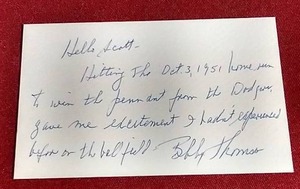 Hello Scott-
Hitting The Oct. 3, 1951 home run
to win the pennant from the Dodgers,
gave me excitement I hadn't experienced
before on the ball field. Bobby Thomson